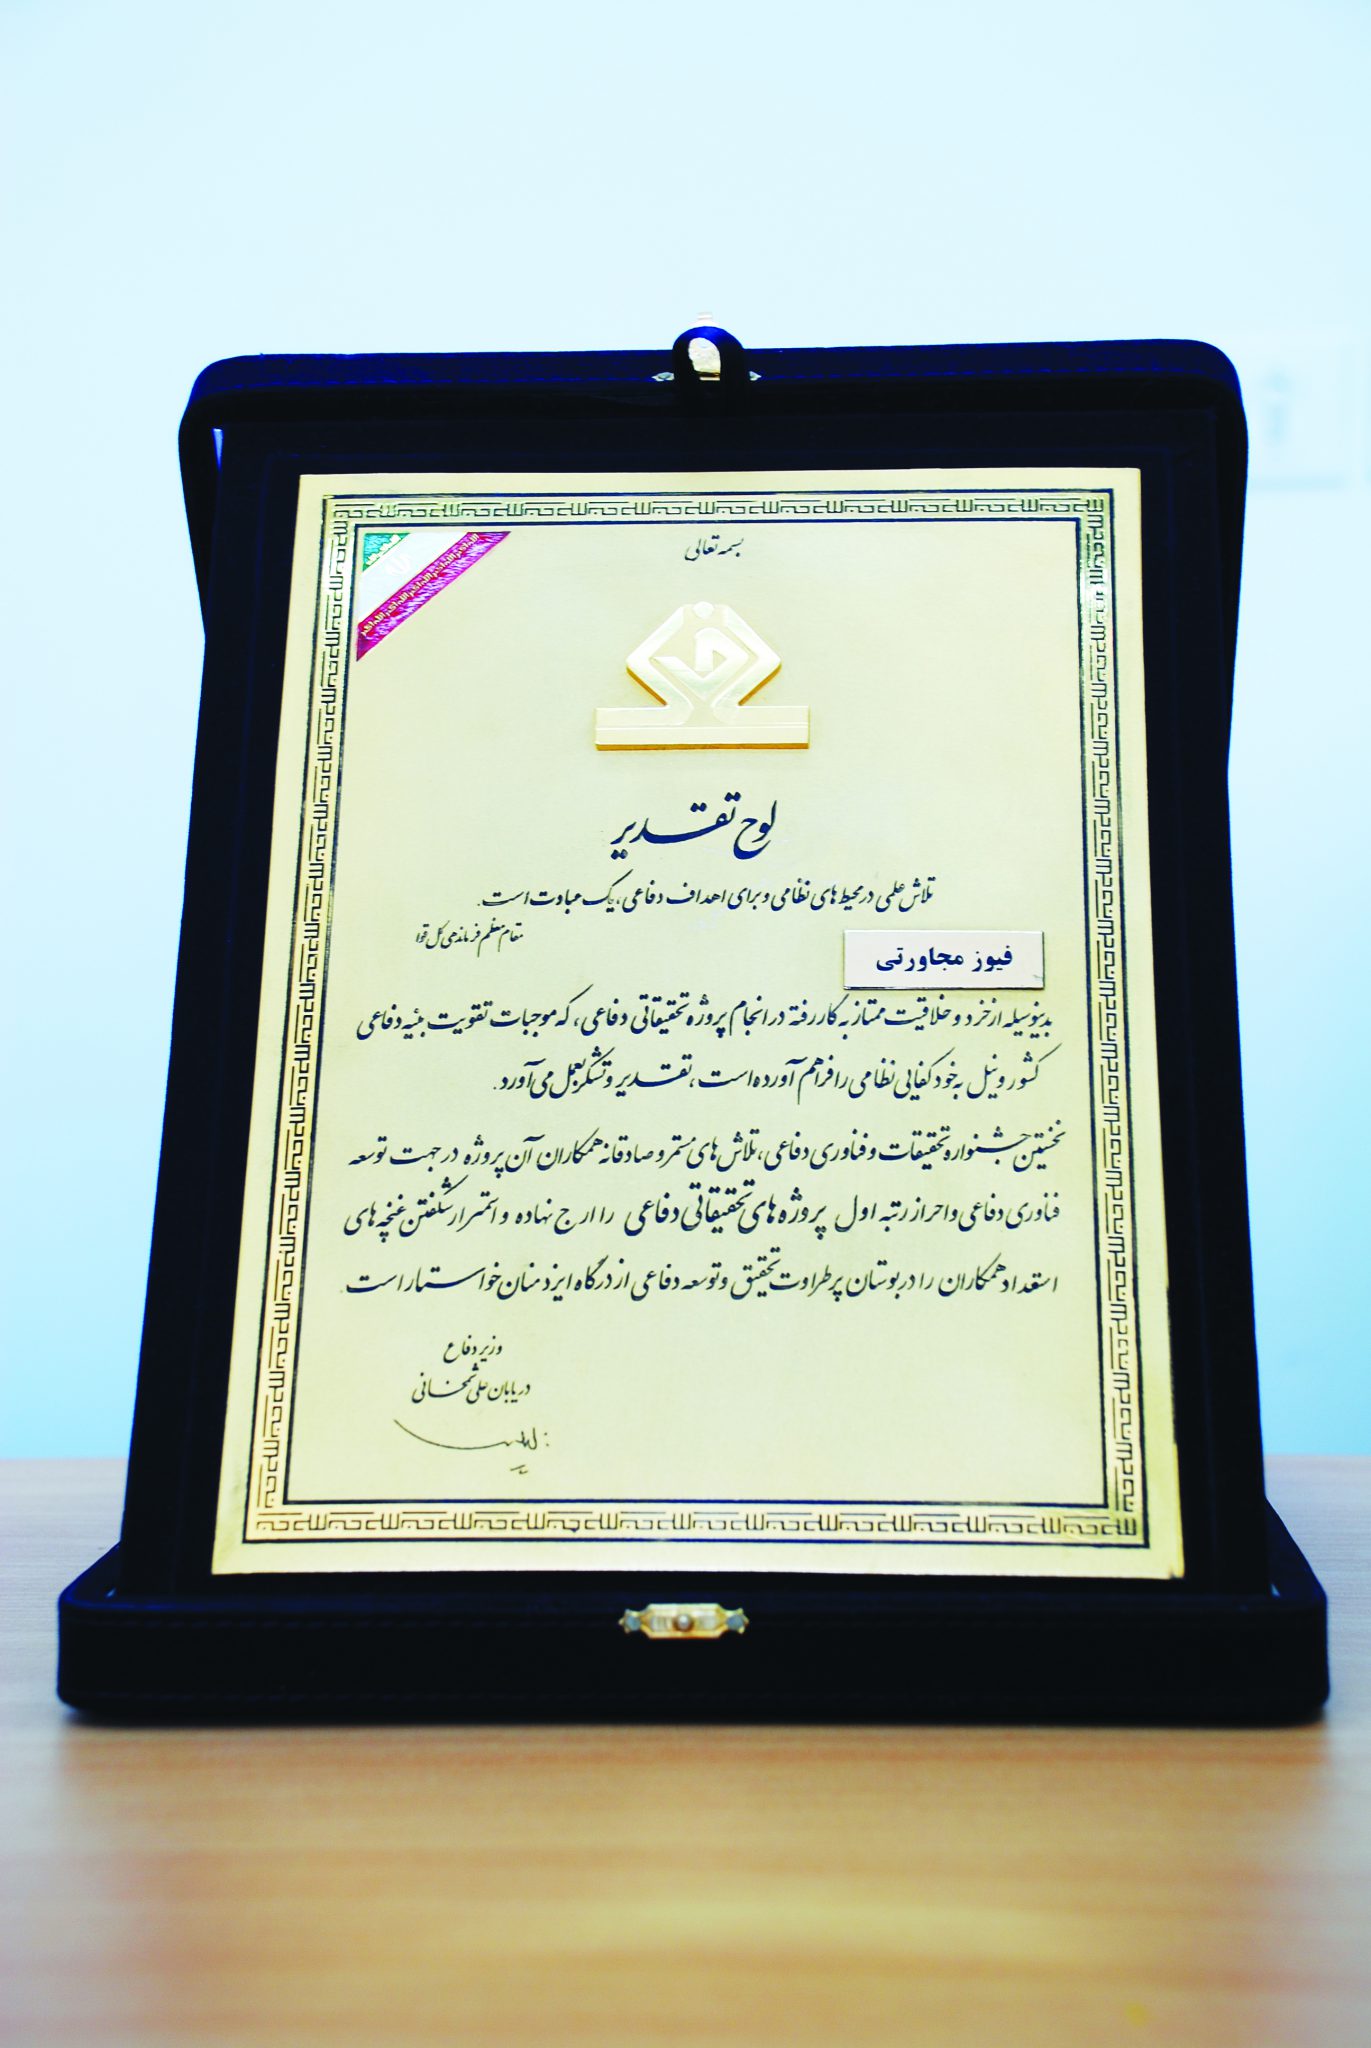 بسمه تعالی
لوح تقدیر
تلاش علمی در محیط های نظامی و برای اهداف دفاعی، یک عبادت است.
مقام معظم فرماندهی کل قوا
فیوز مجاورتی
بدینوسیله از خرد و خلاقیت ممتاز به کار رفته در انجام پروژه تحقیقاتی دفاعی، که موجبات تقویت بنیه دفاعی
کشور و نیل به خودکفایی نظامی را فراهم آورده است، تقدیر و تشکر بعمل می آورد.
نخستین جشنواره تحقیقات و فناوری دفاعی، تلاش های مستمر و صادقانه همکاران آن پروژه در جهت توسعه
فناوری دفاعی و احراز رتبه اول پروژه های تحقیقاتی دفاعی را ارج نهاده و استمرار شکفتن غنچه های
استعداد همکاران را در بوستان پر طراوت تحقیق و توسعه دفاعی از درگاه ایزد منان خواستار است.
وزیر دفاع
دریابان علی شمخانی